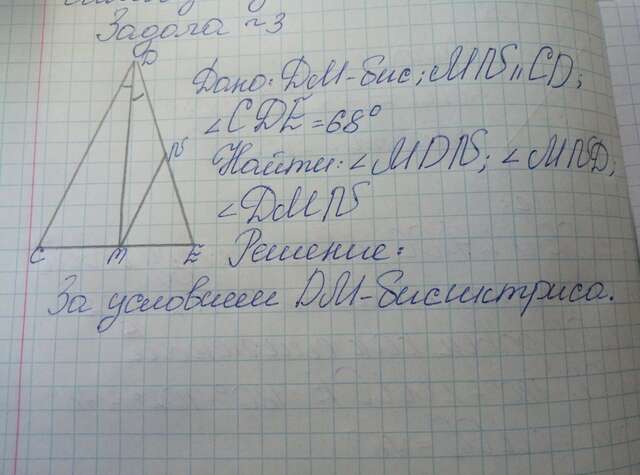 Задача №3
D
Дано: DM-бис; MN॥CD;
∠CDE = 68°
N
Найти: ∠MDN; ∠MND;
∠DMN
C M E Решение:
За условием DM-биссиктриса.